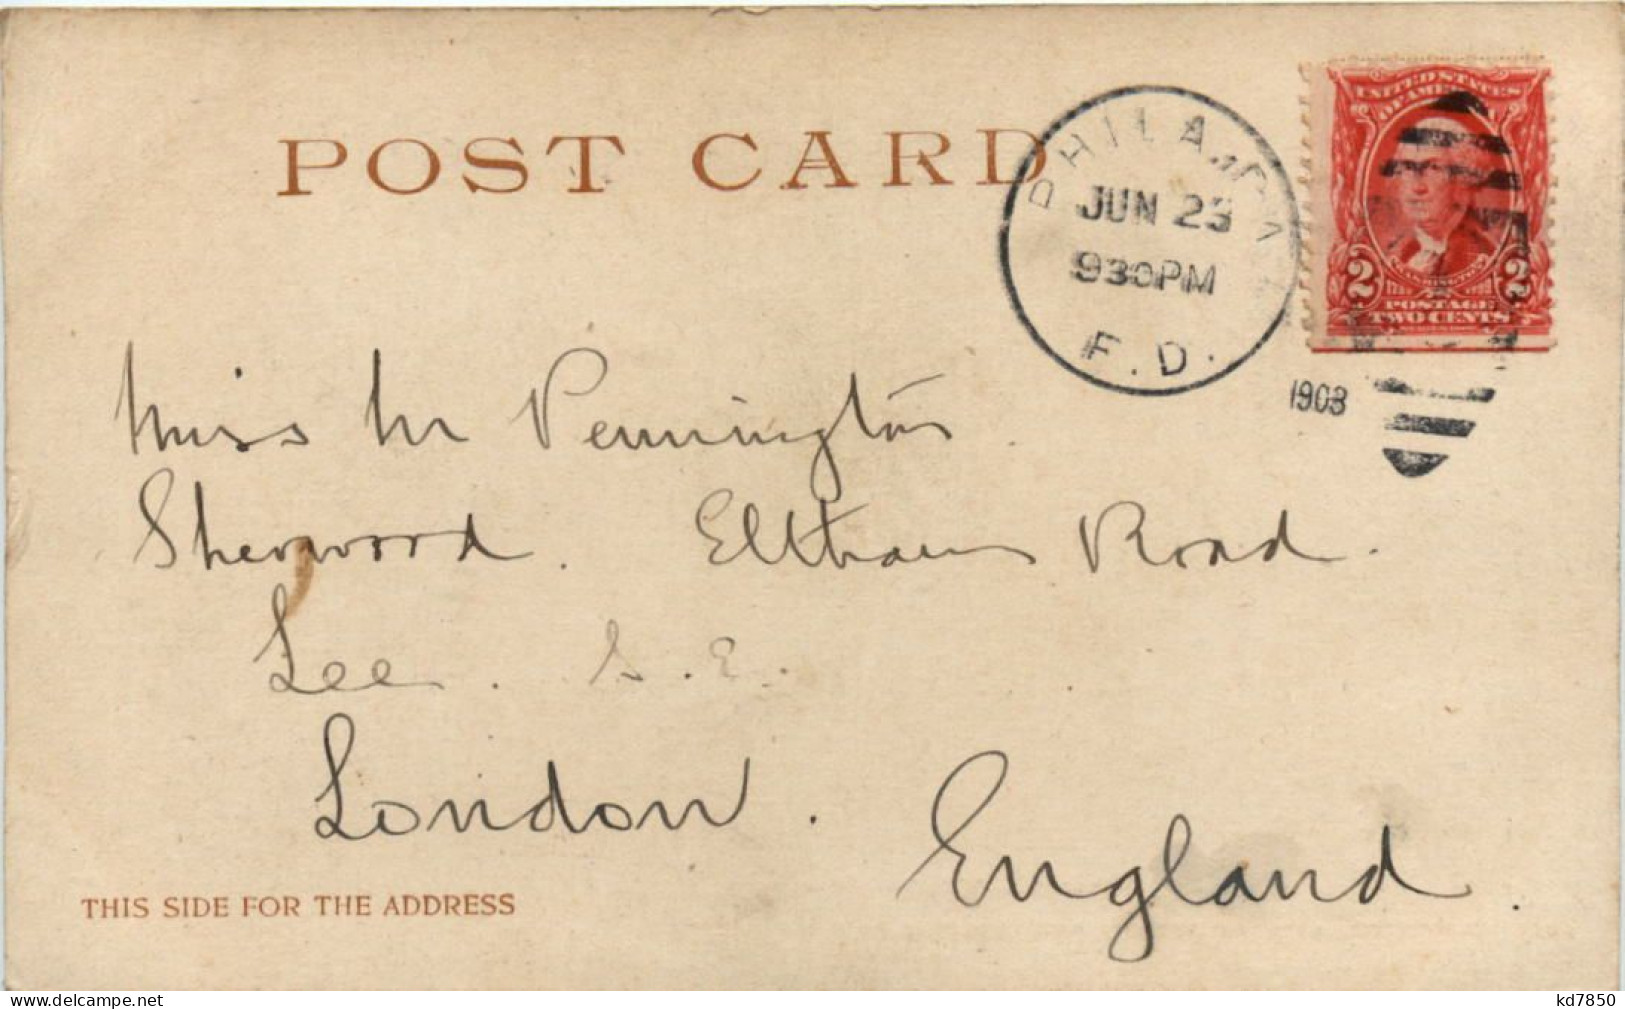 POST CARD
PHILA., PA.
JUN 23
930PM
F. D.
1903
UNITED STATES
OF AMERICA
WASHINGTON
2 2
POSTAGE
TWO CENTS
Miss M Pennington
Sherwood. Eltham Road.
Lee. S. E.
London. England.
THIS SIDE FOR THE ADDRESS
www.delcampe.net
kd7850